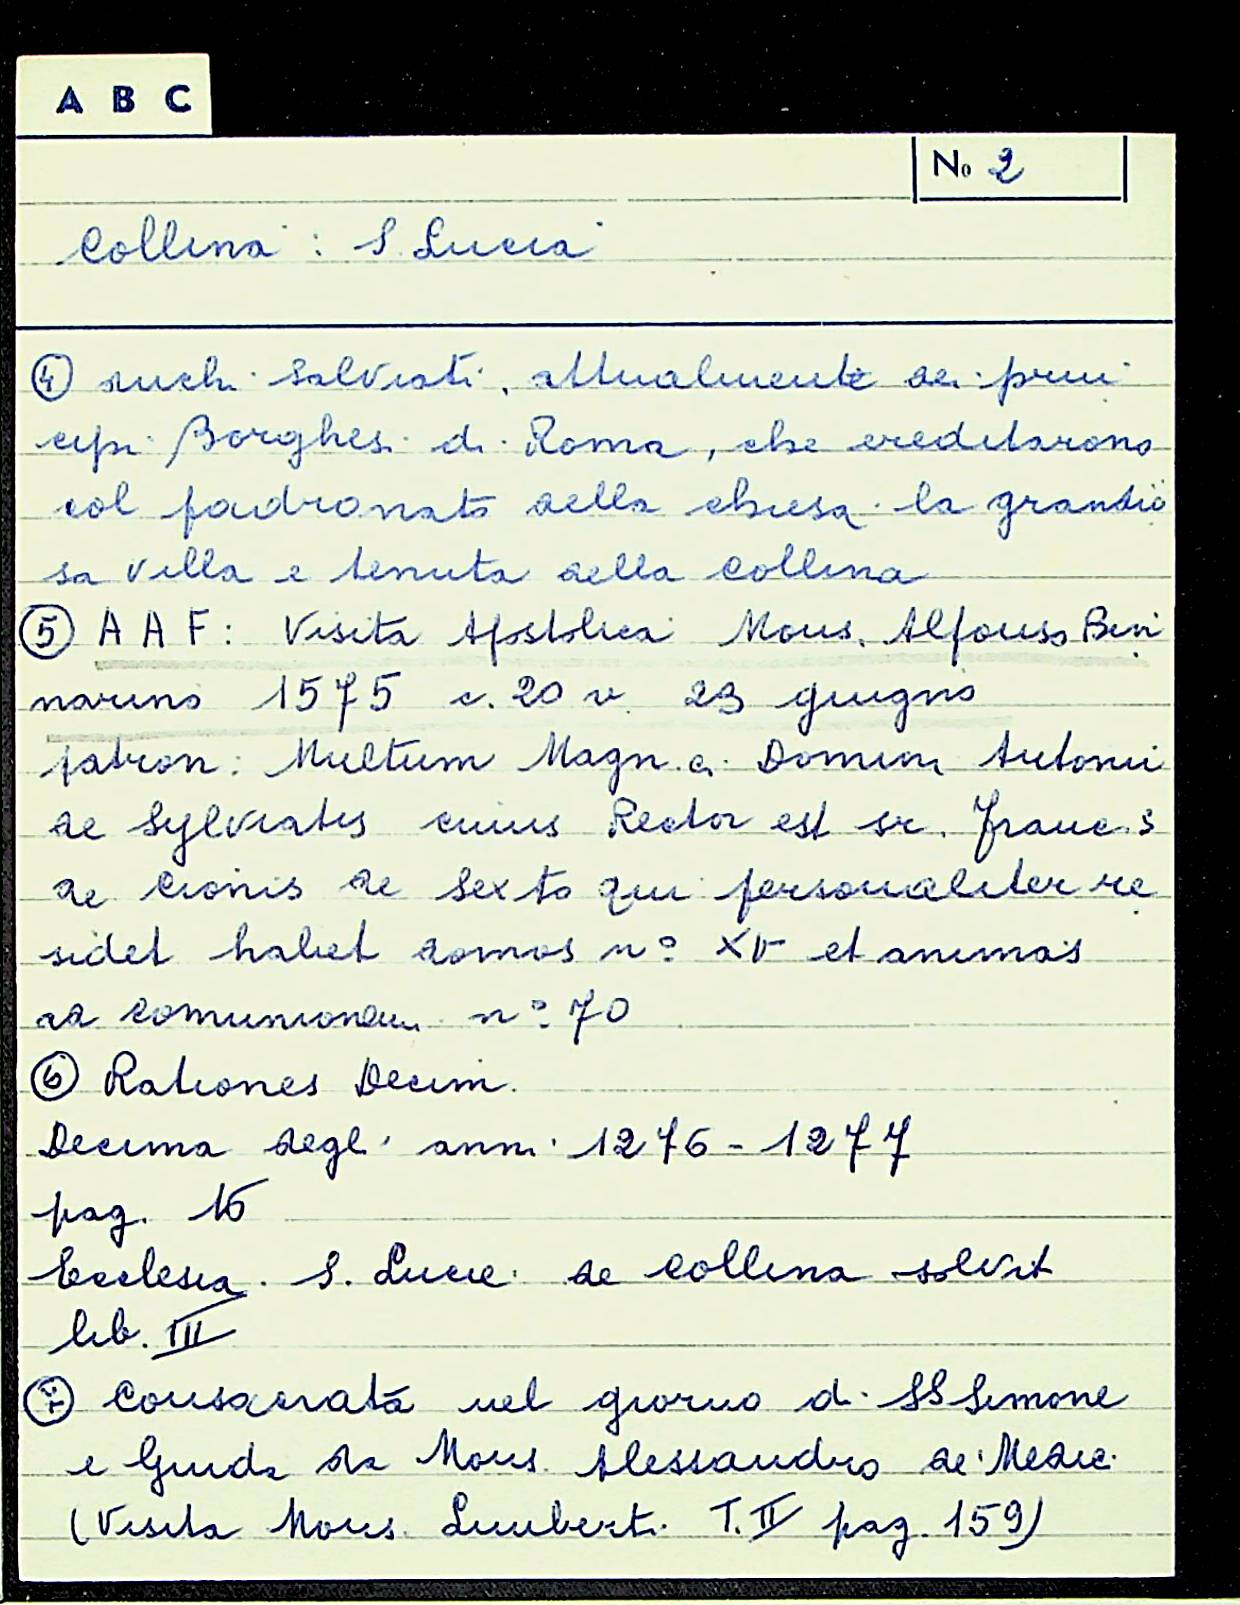 A B C
No 2
Collina : S. Lucia
④ duchi Salviati, attualmente dei prin
cipi Borghesi di Roma, che ereditarono
col padronato della chiesa la grandio
sa villa e tenuta della Collina
⑤ A A F: Visita Apostolica Mons. Alfonso Bin
narino 1575 c. 20 v. 23 giugno
patron: Multum Magn.ci Domini Antonii
de Sylviatis cuius Rector est sr. Franc.s
de Cionis de Sexto qui personaliter re
sidet habet domos n° XV et animas
ad comunionem n° 70
⑥ Rationes Decim.
Decima degli anni 1276 - 1277
pag. 15
Ecclesia S. Lucie de Collina solvit
lib. III
⑦ Consacrata nel giorno di SS Simone
e Giuda da Mons. Alessandro de' Medici
(Visita Mons. Lumberti T. II pag. 159)